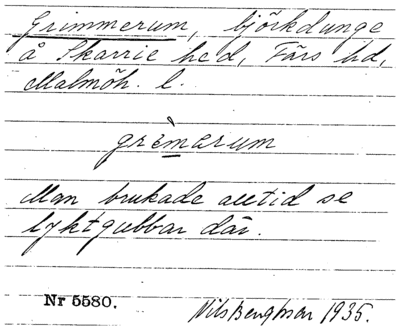 Grimmerum, björkdunge
å Skarrie hed, Färs hd,
Malmöh. l.
grìmerum
Man brukade alltid se
lyktgubbar där.
Nr 5580.
Nils Bengtsson 1935.